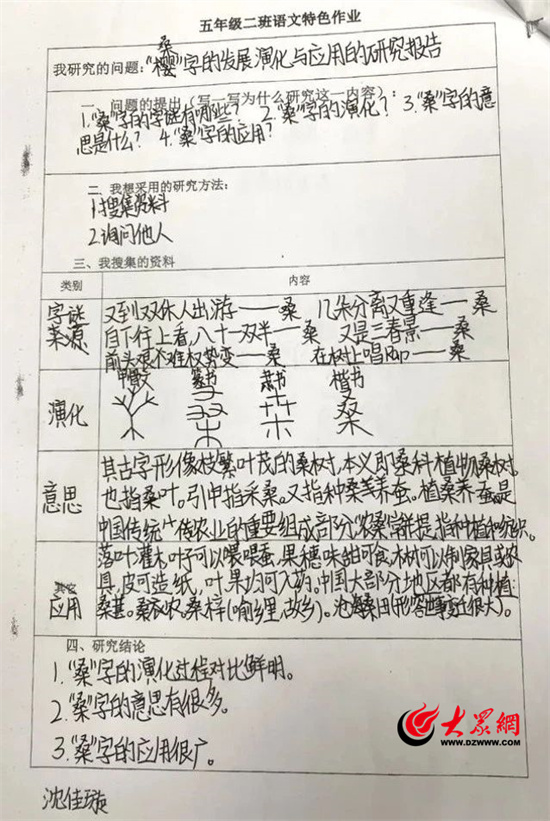 五年级二班语文特色作业
桑
我研究的问题:"樱"字的发展演化与应用的研究报告
一、问题的提出(写一写为什么研究这一内容):
1."桑"字的字谜有哪些? 2."桑"字的演化? 3."桑"字的意
思是什么? 4."桑"字的应用?
二、我想采用的研究方法:
1.搜集资料
2.询问他人
三、我搜集的资料
类别 内容
字谜 又到双休人出游——桑 几朵分离又重逢——桑
来源 自下往上看,八十一双半——桑 又是三春景——桑
前头艰不难权势变——桑 在树上唱Rap——桑
甲骨文 篆书 隶书 楷书
演化 桑
其古字形像枝繁叶茂的桑树,本义即桑科植物桑树,
意思 也指桑叶。引申指采桑。又指种桑养蚕。植桑养蚕是
中国传统农业的重要组成部分"农桑"常并提,指种植和纺织。
落叶灌木叶子可以喂蚕,果穗味甜可食,木材可以制家具或农
其它 具,皮可造纸,叶果均可入药。中国大部分地区都有种植:
应用 桑葚。桑农。桑梓(喻乡里,故乡)。沧海桑田(形容事变迁很大)。
四、研究结论
1."桑"字的演化过程对比鲜明。
2."桑"字的意思有很多。
3."桑"字的应用很广。
大眾網
www.dzwww.com
沈佳璇